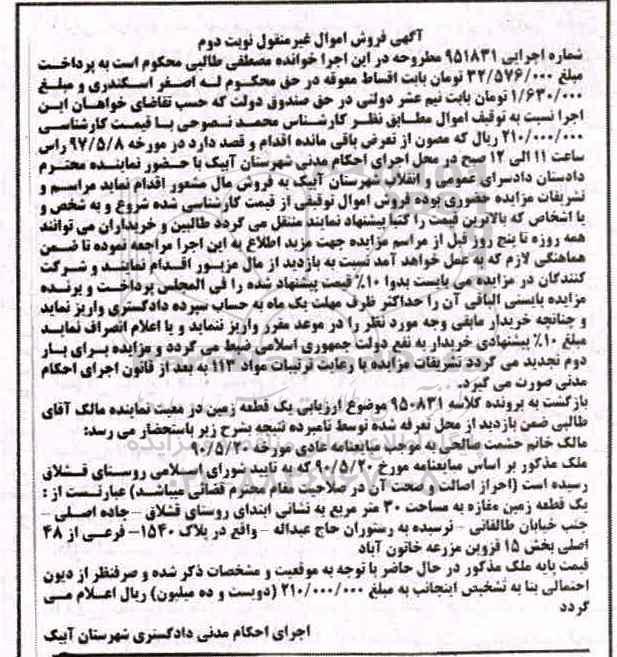 آگهی فروش اموال غیر منقول نوبت دوم
شماره اجرایی ۹۵۱۸۳۱ مطروحه در این اجرا خوانده مصطفی طالبی محکوم است به پرداخت
مبلغ ۳۲/۵۷۶/۰۰۰ تومان بابت اقساط معوقه در حق محکوم له اصغر اسکندری و مبلغ
۱/۶۳۰/۰۰۰ تومان بابت نیم عشر دولتی در حق صندوق دولت که حسب تقاضای خواهان این
اجرا نسبت به توقیف اموال مطابق نظر کارشناس محمد نصوحی با قیمت کارشناسی
۲۱۰/۰۰۰/۰۰۰ ریال که مصون از تعرض باقی مانده اقدام و قصد دارد در مورخه ۹۷/۵/۸ راس
ساعت ۱۱ الی ۱۲ صبح در محل اجرای احکام مدنی شهرستان آبیک با حضور نماینده محترم
دادستان دادسرای عمومی و انقلاب شهرستان آبیک به فروش مال مشعور اقدام نماید مراسم و
تشریفات مزایده حضوری بوده فروش اموال توقیفی از قیمت کارشناسی شده شروع و به شخص و
یا اشخاص که بالاترین قیمت را کتبا پیشنهاد نمایند منتقل می گردد طالبین و خریداران می توانند
همه روزه تا پنج روز قبل از مراسم مزایده جهت مزید اطلاع به این اجرا مراجعه نموده تا ضمن
هماهنگی لازم که به عمل خواهد آمد نسبت به بازدید از مال مزبور اقدام نمایند و شرکت
کنندگان در مزایده می بایست بدوا ۱۰٪ قیمت پیشنهاد شده را فی المجلس پرداخت و برنده
مزایده بایستی الباقی آن را حداکثر ظرف مهلت یک ماه به حساب سپرده دادگستری واریز نماید
و چنانچه خریدار مابقی وجه مورد نظر را در موعد مقرر واریز ننماید و یا اعلام انصراف نماید
مبلغ ۱۰٪ پیشنهادی خریدار به نفع دولت جمهوری اسلامی ضبط می گردد و مزایده برای بار
دوم تجدید می گردد تشریفات مزایده با رعایت ترتیبات مواد ۱۱۳ به بعد از قانون اجرای احکام
مدنی صورت می گیرد.
بازگشت به پرونده کلاسه ۹۵۰۸۳۱ موضوع ارزیابی یک قطعه زمین در معیت نماینده مالک آقای
طالبی ضمن بازدید از محل تعرفه شده توسط نامبرده نتیجه بشرح زیر باستحضار می رسد:
مالک خانم حشمت صالحی به موجب مبایعنامه عادی مورخه ۹۰/۵/۲۰
ملک مذکور بر اساس مبایعنامه مورخ ۹۰/۵/۲۰ که به تایید شورای اسلامی روستای قشلاق
رسیده است (احراز اصالت و صحت آن در صلاحیت مقام محترم قضائی میباشد) عبارتست از :
یک قطعه زمین مغازه به مساحت ۳۰ متر مربع به نشانی ابتدای روستای قشلاق - جاده اصلی -
جنب خیابان طالقانی - نرسیده به رستوران حاج عبداله - واقع در پلاک ۱۵۴۰- فرعی از ۴۸
اصلی بخش ۱۵ قزوین مزرعه خاتون آباد
قیمت پایه ملک مذکور در حال حاضر با توجه به موقعیت و مشخصات ذکر شده و صرفنظر از دیون
احتمالی بنا به تشخیص اینجانب به مبلغ ۲۱۰/۰۰۰/۰۰۰ (دویست و ده میلیون) ریال اعلام می
گردد
اجرای احکام مدنی دادگستری شهرستان آبیک